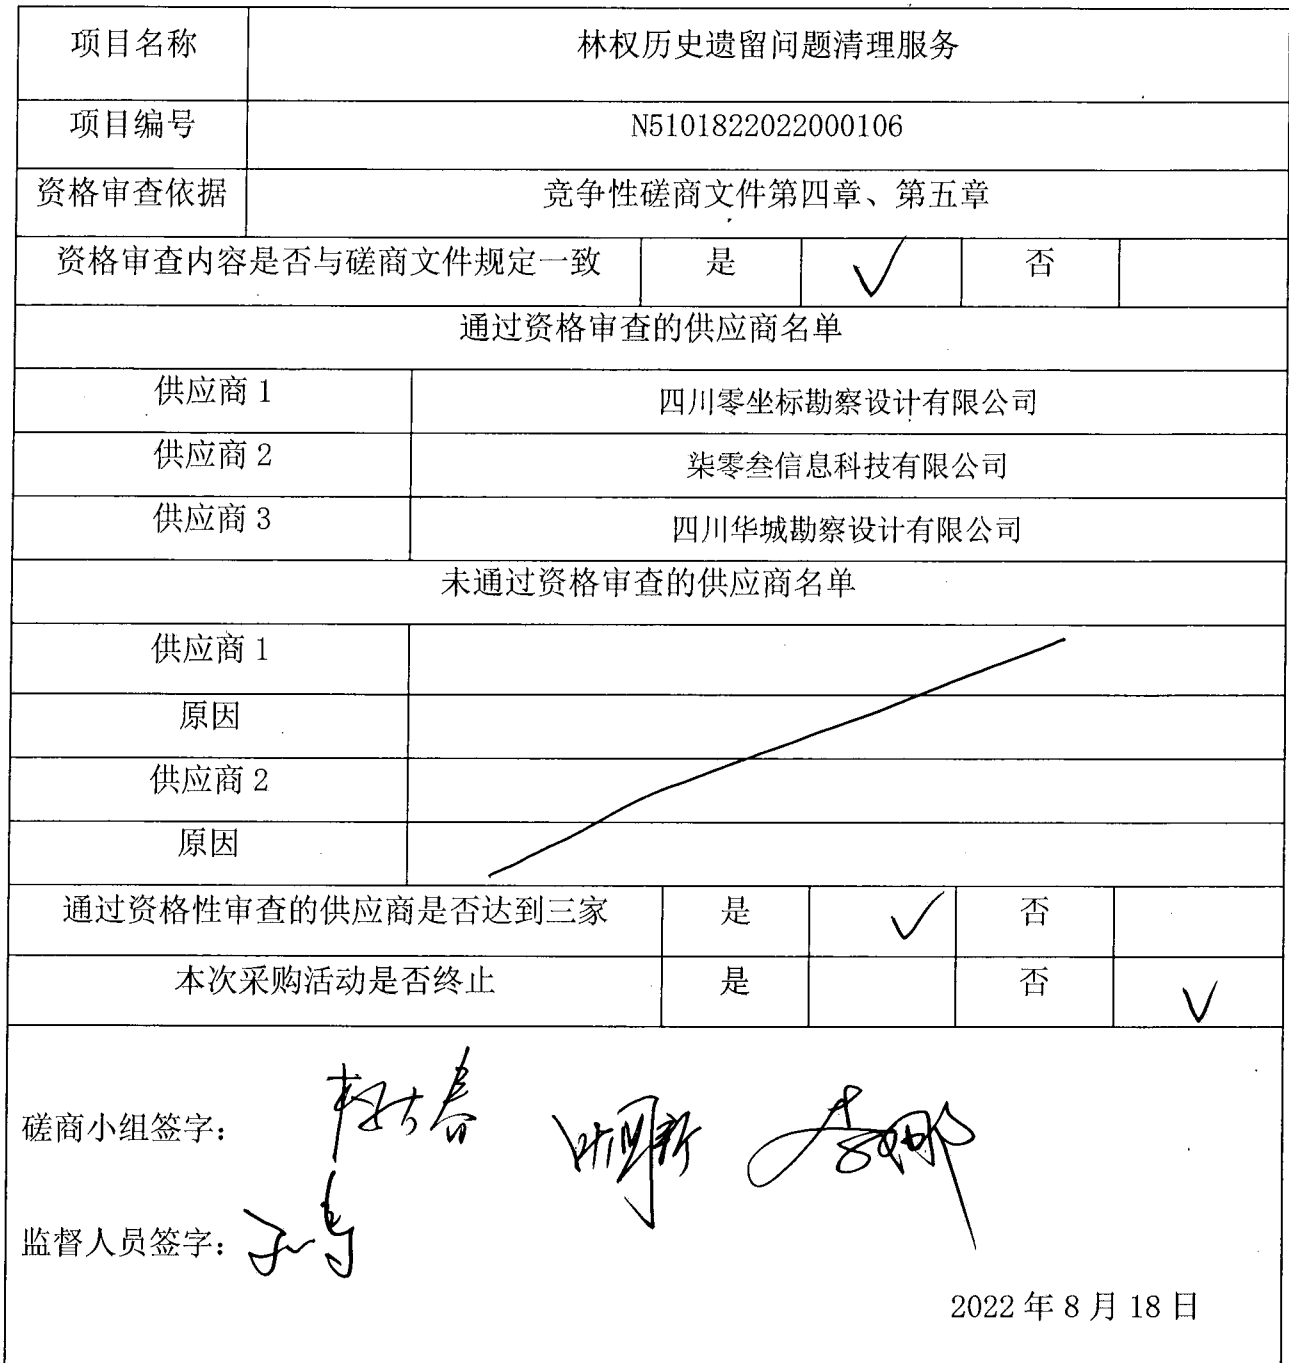 项目名称 林权历史遗留问题清理服务
项目编号 N5101822022000106
资格审查依据 竞争性磋商文件第四章、第五章
资格审查内容是否与磋商文件规定一致 是 √ 否
通过资格审查的供应商名单
供应商 1 四川零坐标勘察设计有限公司
供应商 2 柒零叁信息科技有限公司
供应商 3 四川华城勘察设计有限公司
未通过资格审查的供应商名单
供应商 1
原因
供应商 2
原因
通过资格性审查的供应商是否达到三家 是 √ 否
本次采购活动是否终止 是 否 √
磋商小组签字：
监督人员签字：
2022 年 8 月 18 日